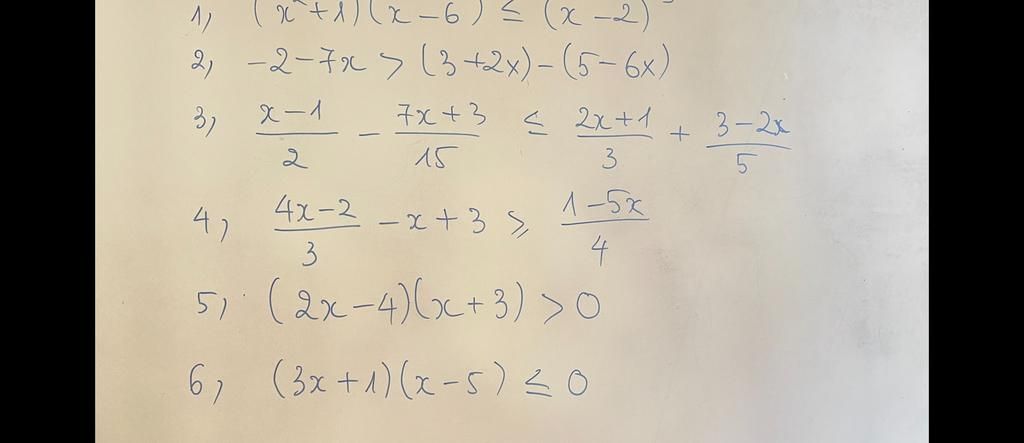 1, (x²+1)(x-6) ≤ (x-2)
2, -2-7x > (3+2x)-(5-6x)
3, (x-1)/2 - (7x+3)/15 ≤ (2x+1)/3 + (3-2x)/5
4, (4x-2)/3 - x+3 ≥ (1-5x)/4
5, (2x-4)(x+3) > 0
6, (3x+1)(x-5) ≤ 0